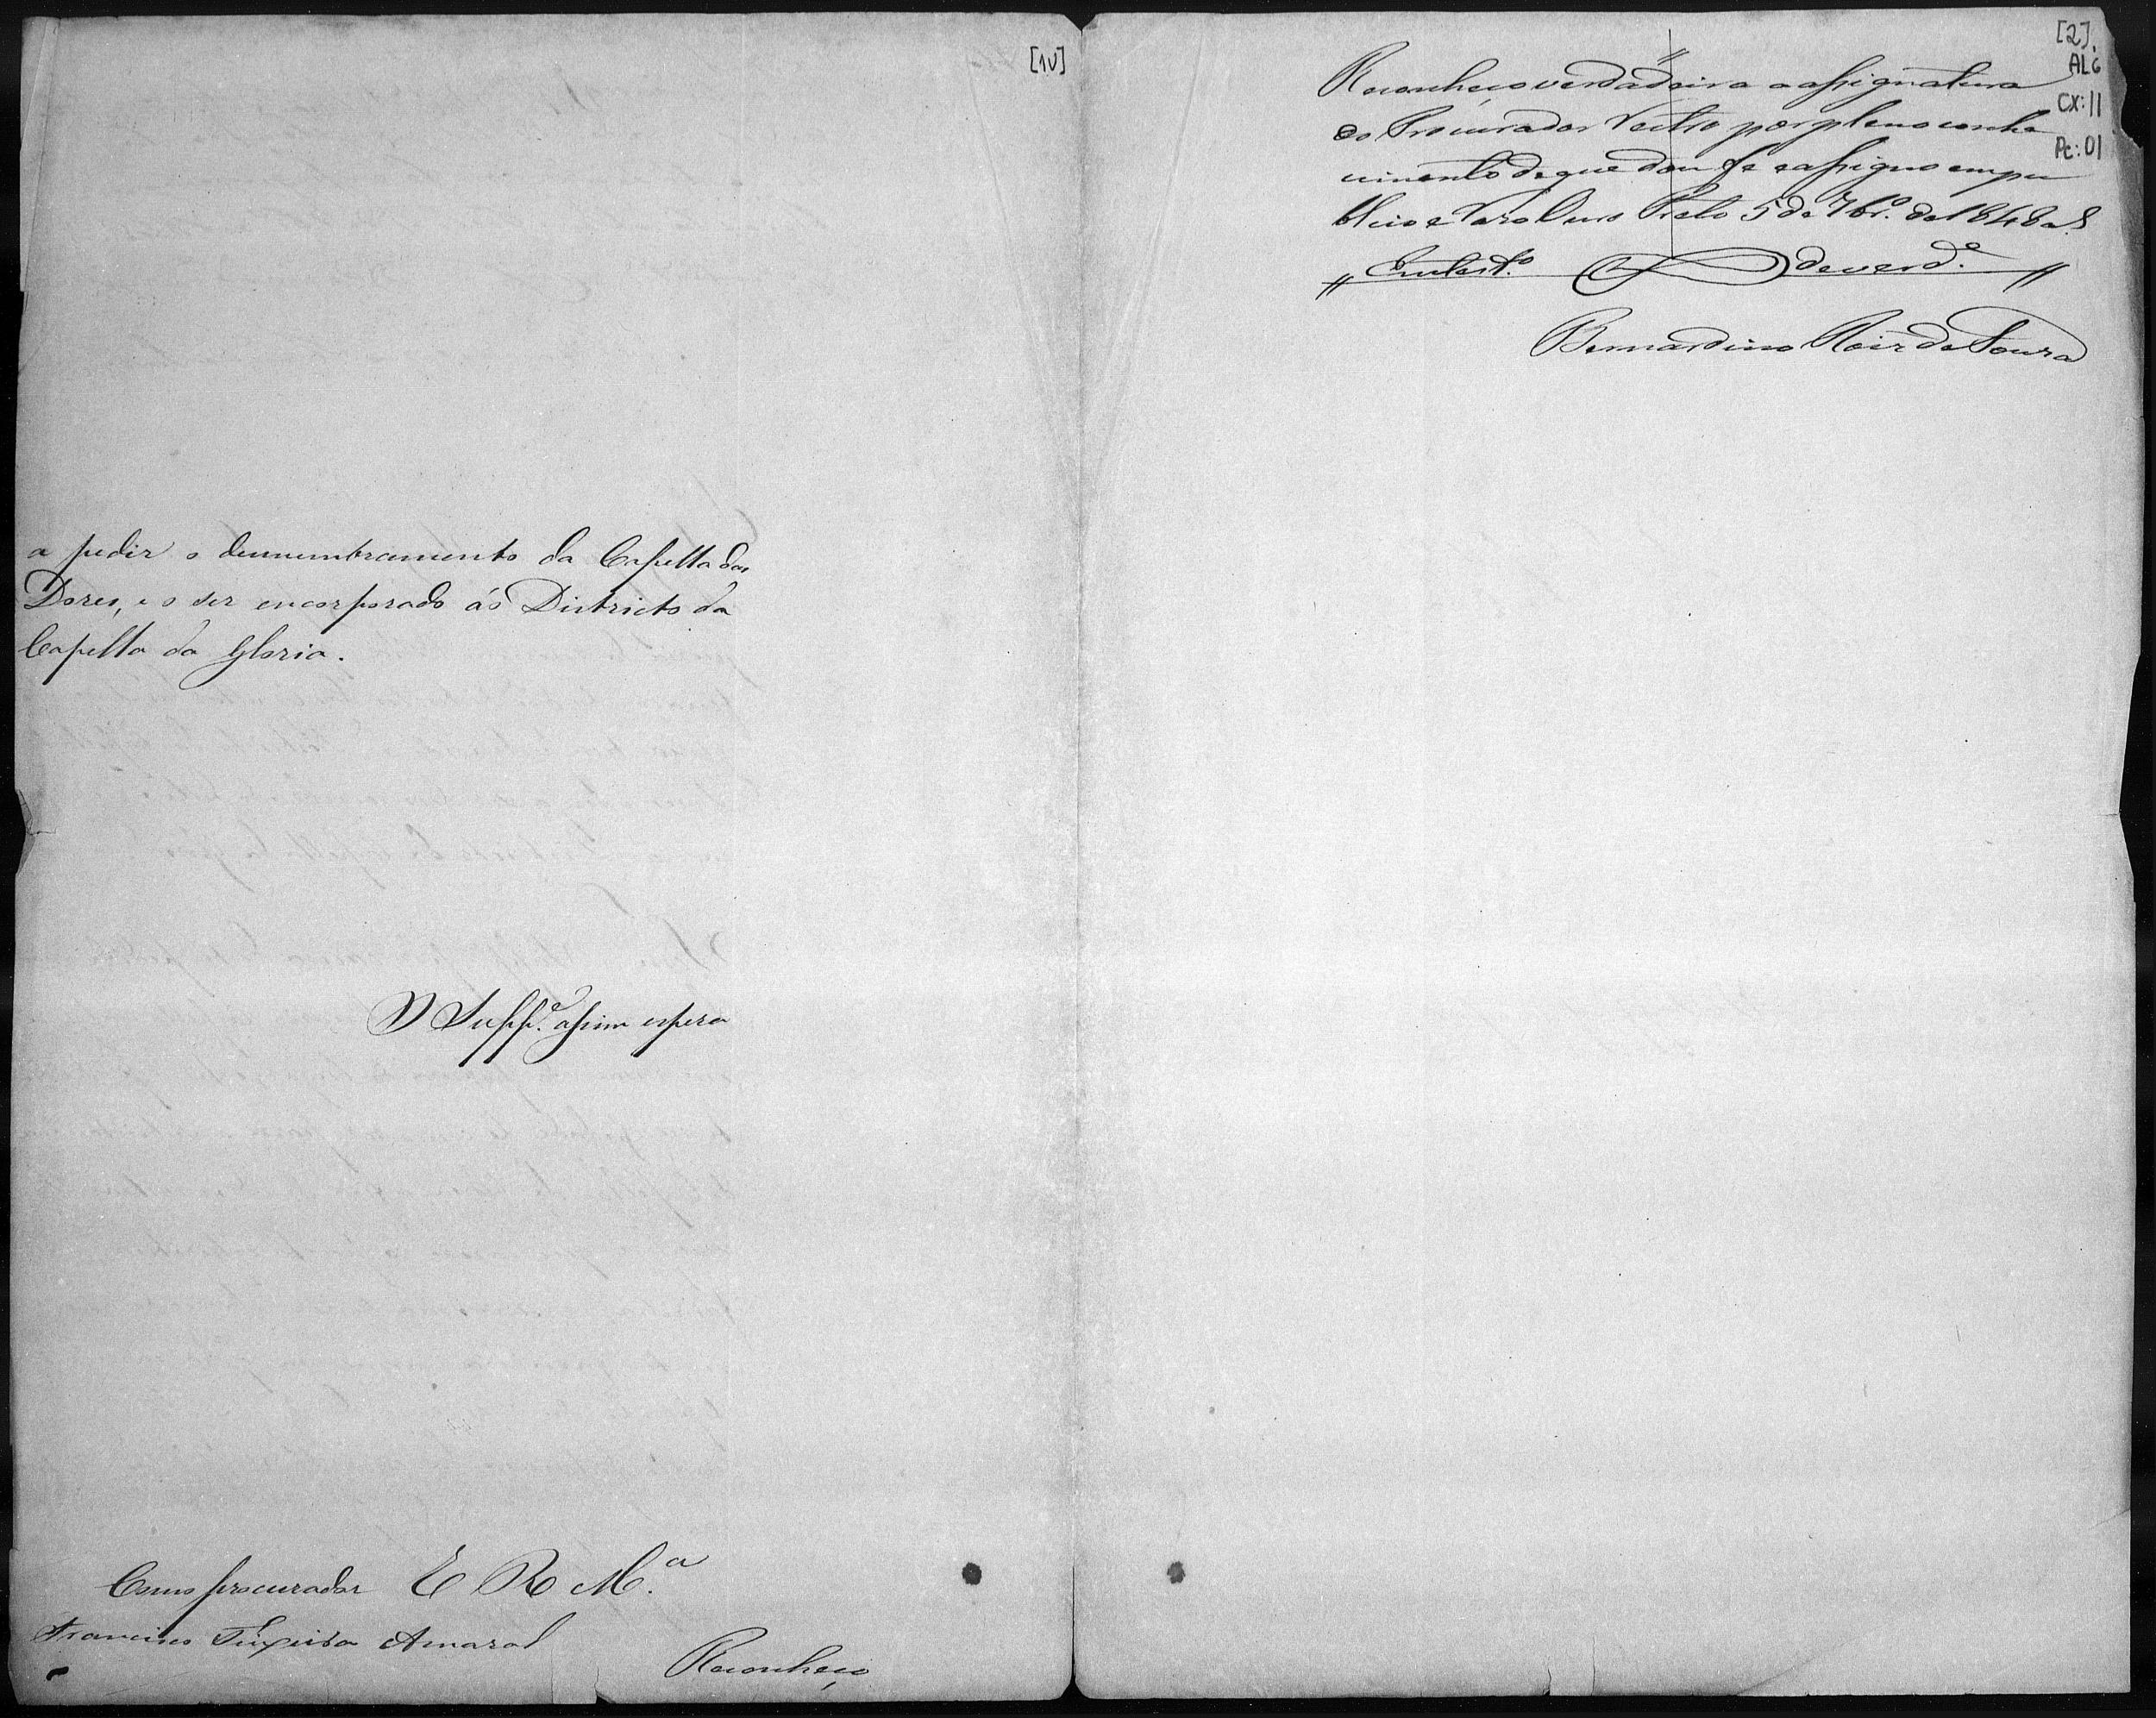 [1V]
a pedir o desmembramento da Capella das
Dores, e o ser encorporado ao Districto da
Capella da Gloria.
O Supp.e assim espera
Como procurador E R M.a
Francisco Teixeira Amaral
Reconheço
[2].
AL6
CX: 11
Pc: 01
Reconheço verdadeira a assignatura
do Procurador por pleno conhe
cimento de que dou fe e assigno em pu
blico e raso Ouro Preto 5 de 7br.o de 1848
de verd.e
Bernardino Roiz de Souza